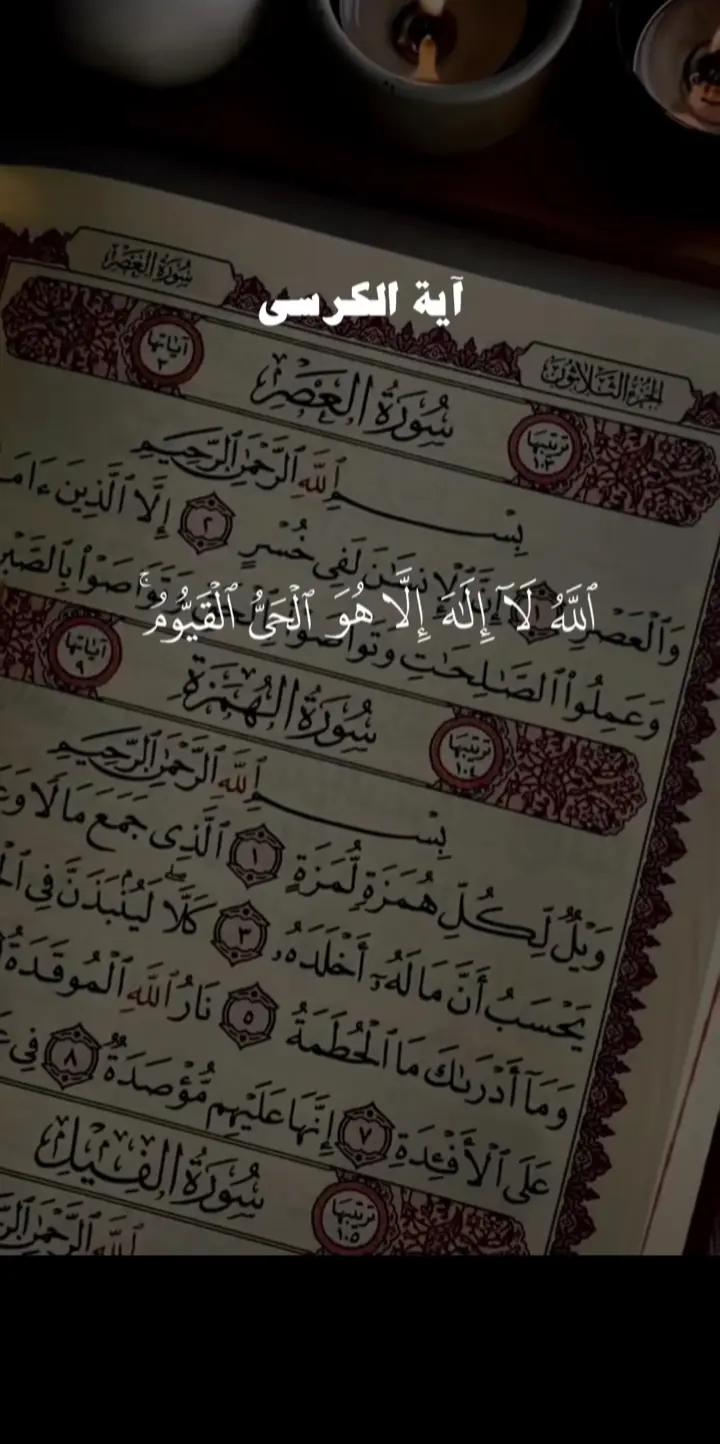 سُورَةُ العَصْرِ
آية الكرسى
الجزء الثلاثون
آياتها ٣
سُورَةُ العَصْرِ
ترتيبها ١٠٣
بِسْمِ ٱللَّهِ ٱلرَّحْمَٰنِ ٱلرَّحِيمِ
وَٱلْعَصْرِ ١ إِنَّ ٱلْإِنسَٰنَ لَفِى خُسْرٍ ٢ إِلَّا ٱلَّذِينَ
ٱللَّهُ لَآ إِلَٰهَ إِلَّا هُوَ ٱلْحَىُّ ٱلْقَيُّومُ ۚ
وَعَمِلُوا۟ ٱلصَّٰلِحَٰتِ وَتَوَاصَوْا۟ وَتَوَاصَوْا۟ بِٱلصَّبْرِ
آياتها ٩
سُورَةُ الهُمَزَةِ
ترتيبها ١٠٤
بِسْمِ ٱللَّهِ ٱلرَّحْمَٰنِ ٱلرَّحِيمِ
وَيْلٌ لِّكُلِّ هُمَزَةٍ لُّمَزَةٍ ١ ٱلَّذِى جَمَعَ مَالًا
يَحْسَبُ أَنَّ مَالَهُۥٓ أَخْلَدَهُۥ ٣ كَلَّا ۖ لَيُنۢبَذَنَّ فِى
وَمَآ أَدْرَىٰكَ مَا ٱلْحُطَمَةُ ٥ نَارُ ٱللَّهِ ٱلْمُوقَدَةُ
عَلَى ٱلْأَفْـِٔدَةِ ٧ إِنَّهَا عَلَيْهِم مُّؤْصَدَةٌ ٨ فِى
سُورَةُ الفِيلِ
ترتيبها ١٠٥
ٱللَّهِ ٱلرَّحْمَٰنِ